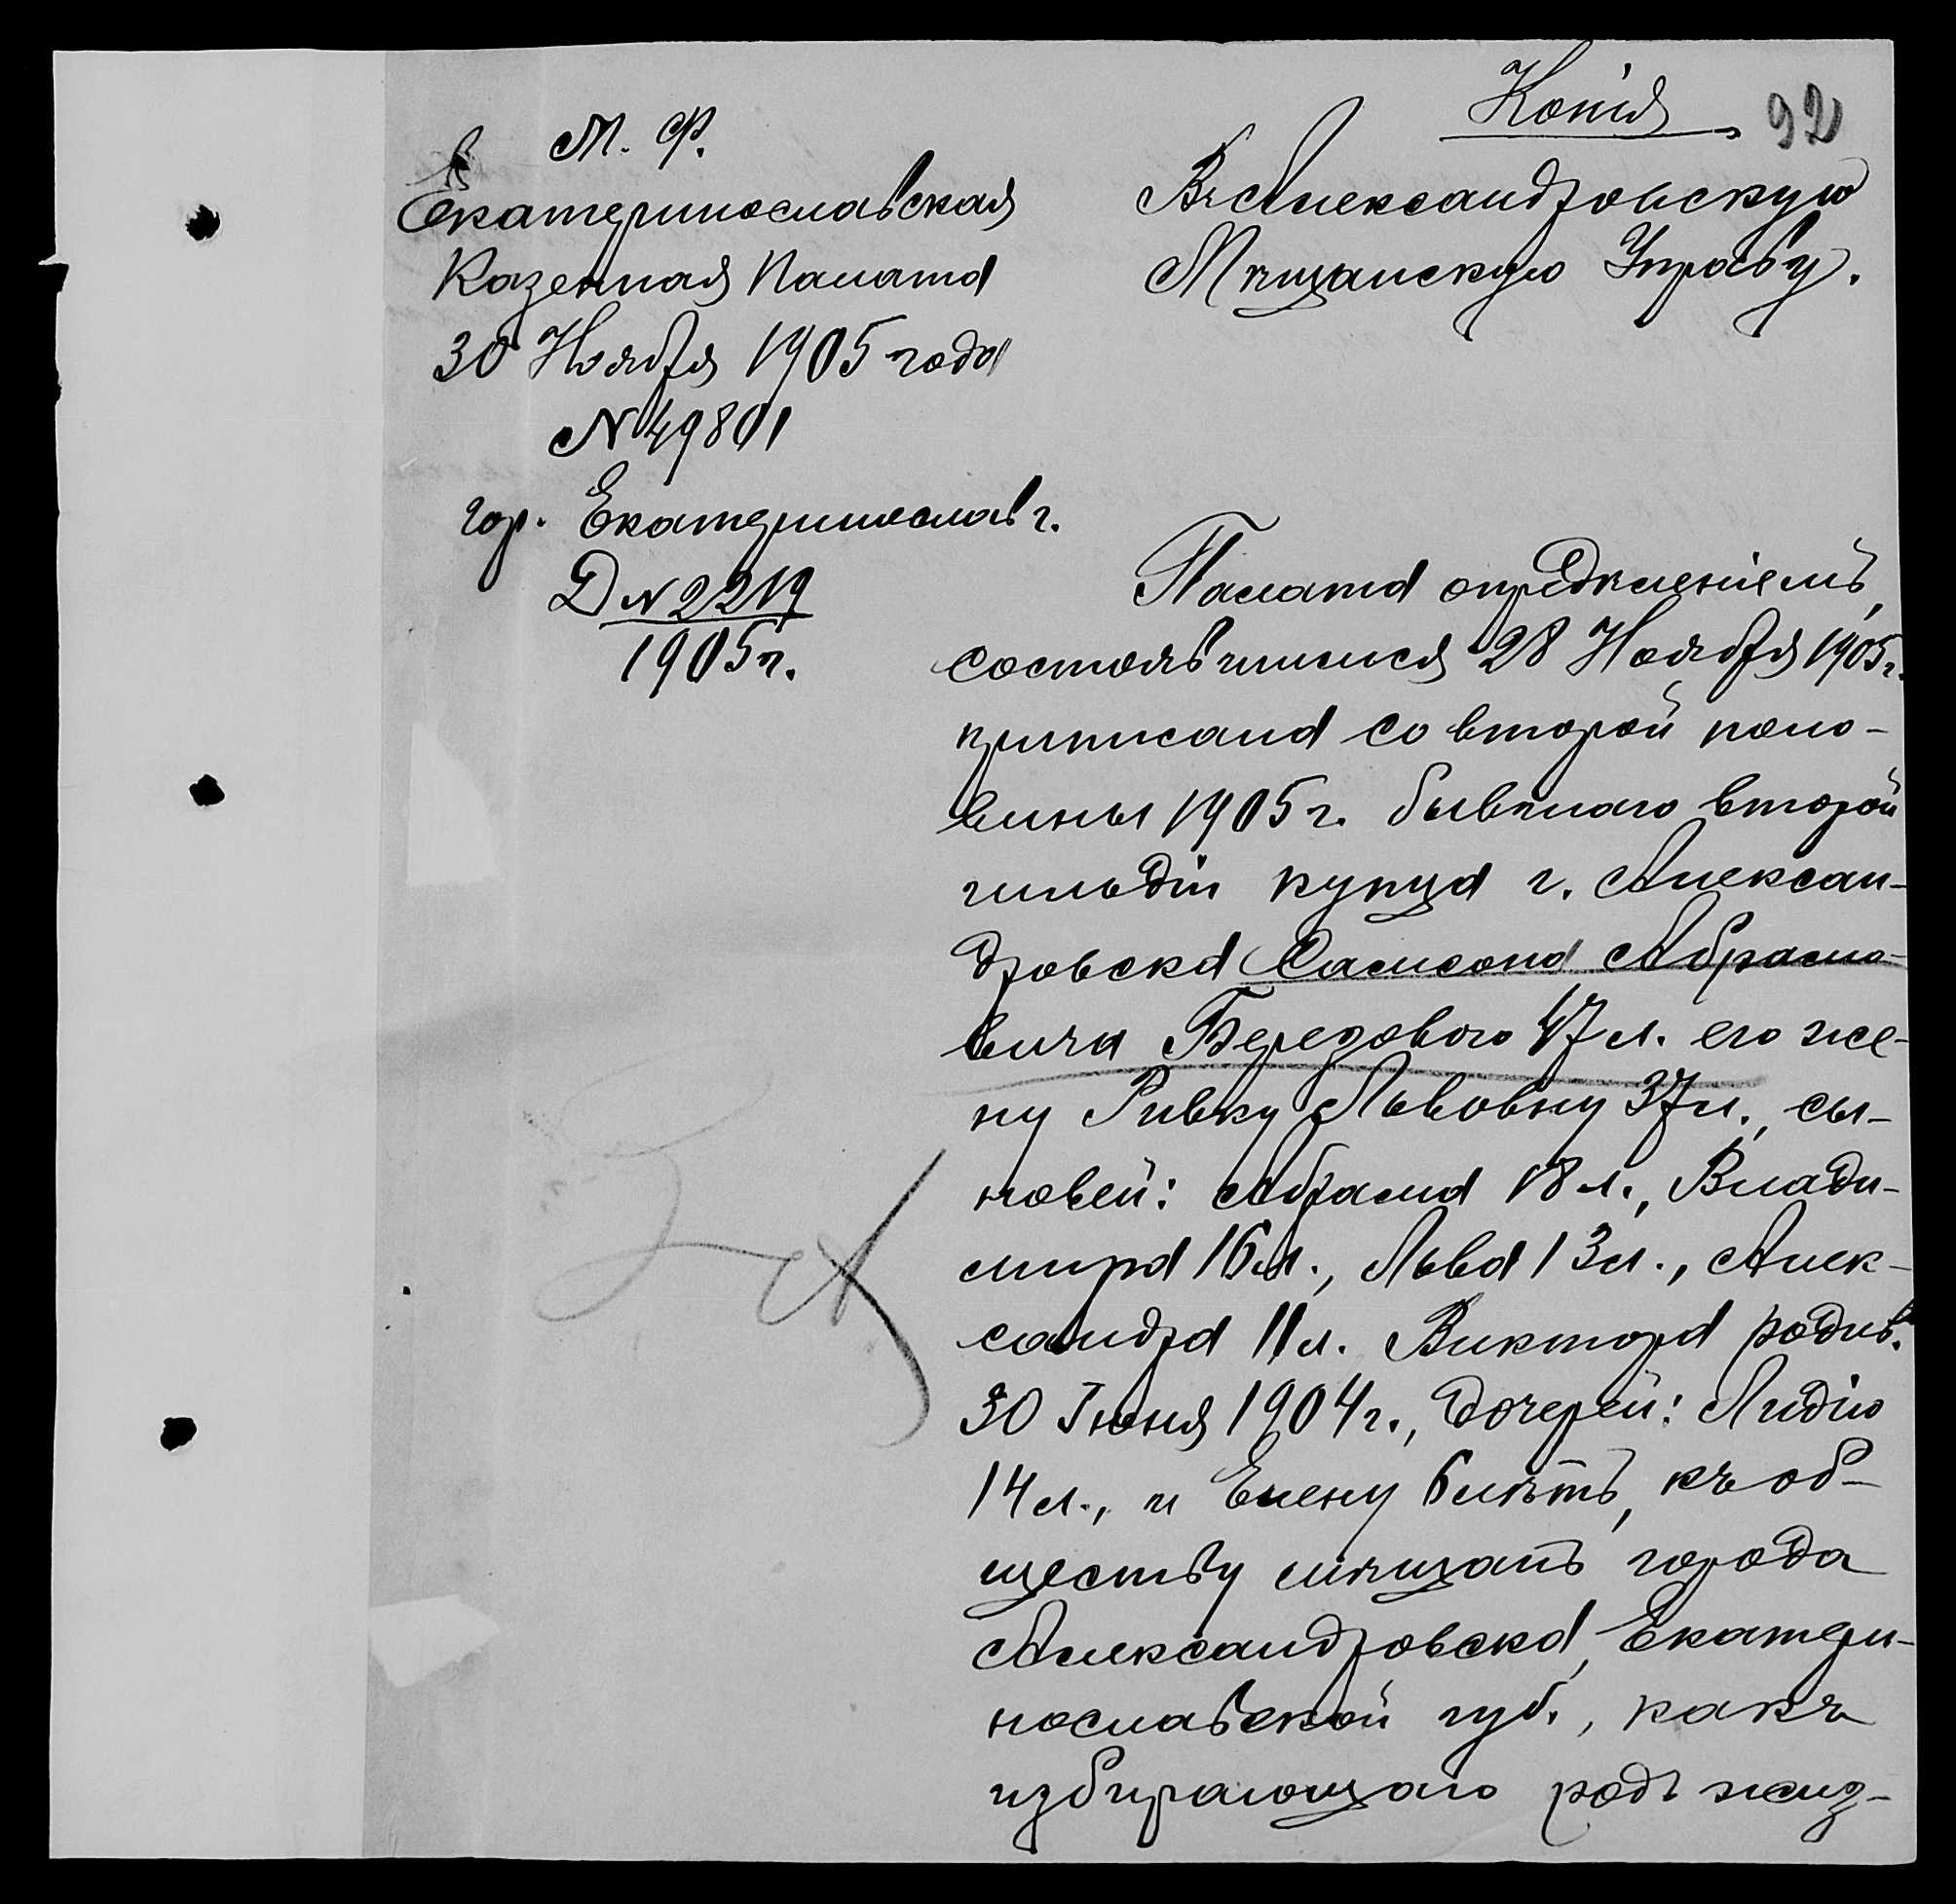 Копія
92
М. Ф.
Екатеринославская
Казенная Палата
30 Ноября 1905 года
N 49801
гор. Екатеринославъ.
Д N 2219
1905 г.
Въ Александровскую
Мѣщанскую Управу.
Палата опредѣленіемъ,
состоявшимся 28 Ноября 1905 г.
приписала со второй поло-
вины 1905 г. бывшаго второй
гильдіи купца г. Алексан-
дровска Самсона Абрамо-
вича Березоваго 47 л. его же-
ну Ривку Львовну 37 л., сы-
новей: Абрама 18 л., Влади-
мира 16 л., Льва 13 л., Алек-
сандра 11 л. Виктора родив.
30 Іюня 1904 г., дочерей: Лидію
14 л., и Елену 6 лѣтъ, къ об-
ществу мѣщанъ города
Александровска, Екатери-
нославской губ., какъ
избирающаго родъ жиз-